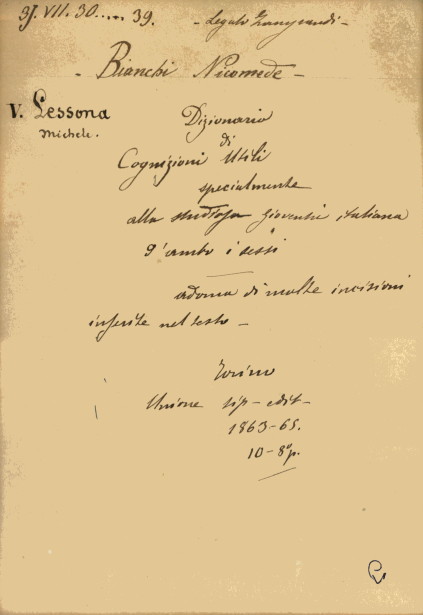 9J. VII. 30..... 39. - Legato Zangrandi -
- Bianchi Nicomede -
V. Lessona
Michele.
Dizionario
di
Cognizioni Utili
specialmente
alla studiosa gioventù italiana
d'ambo i sessi
adorna di molte incisioni
inserite nel testo -
Torino
Unione tip-edit-
1863-65.
10-8°p.